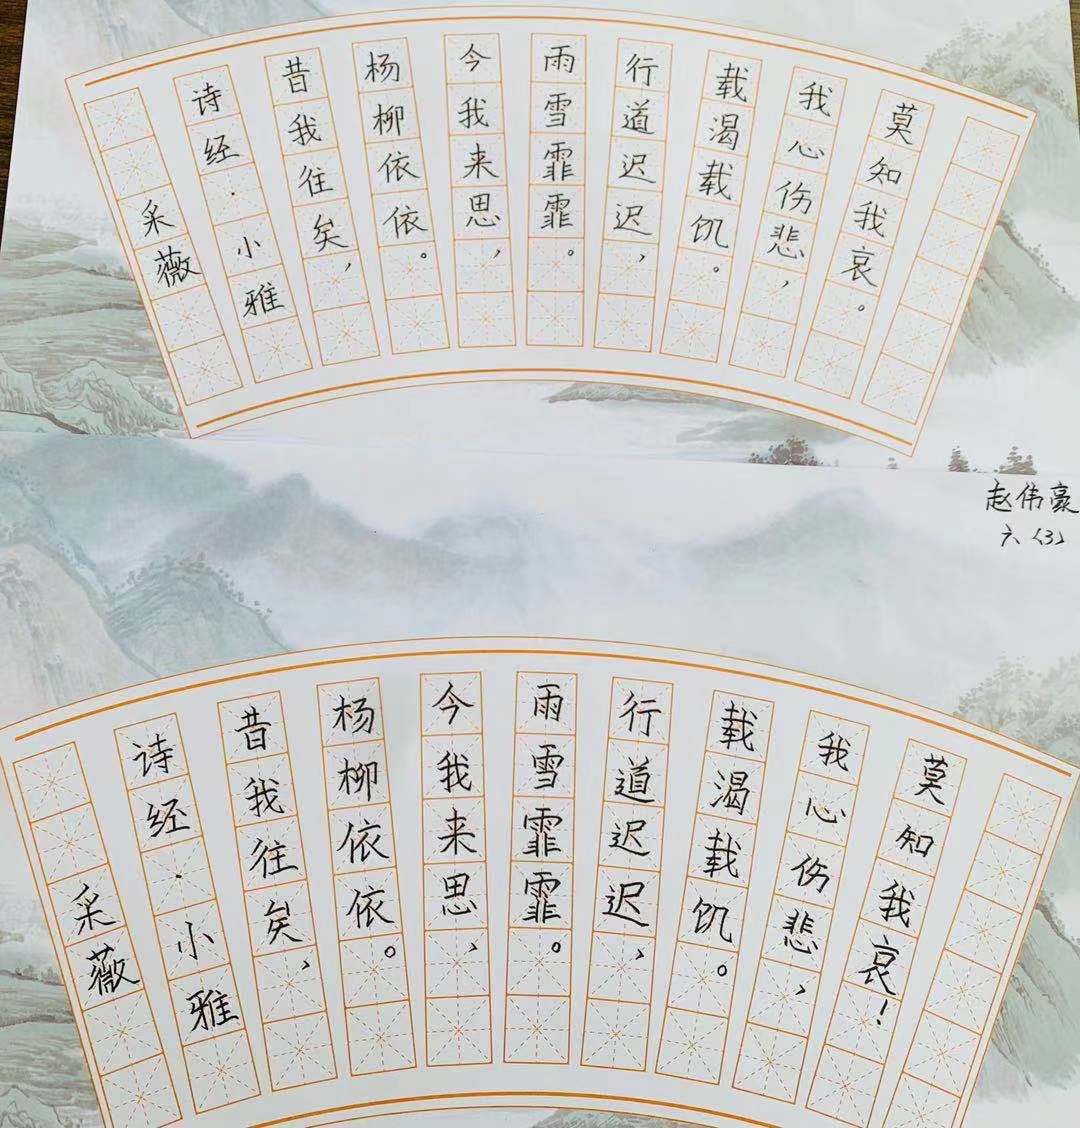 采薇
诗经·小雅
昔我往矣，
杨柳依依。
今我来思，
雨雪霏霏。
行道迟迟，
载渴载饥。
我心伤悲，
莫知我哀。
赵伟豪
六〈3〉
采薇
诗经·小雅
昔我往矣，
杨柳依依。
今我来思，
雨雪霏霏。
行道迟迟，
载渴载饥。
我心伤悲，
莫知我哀！